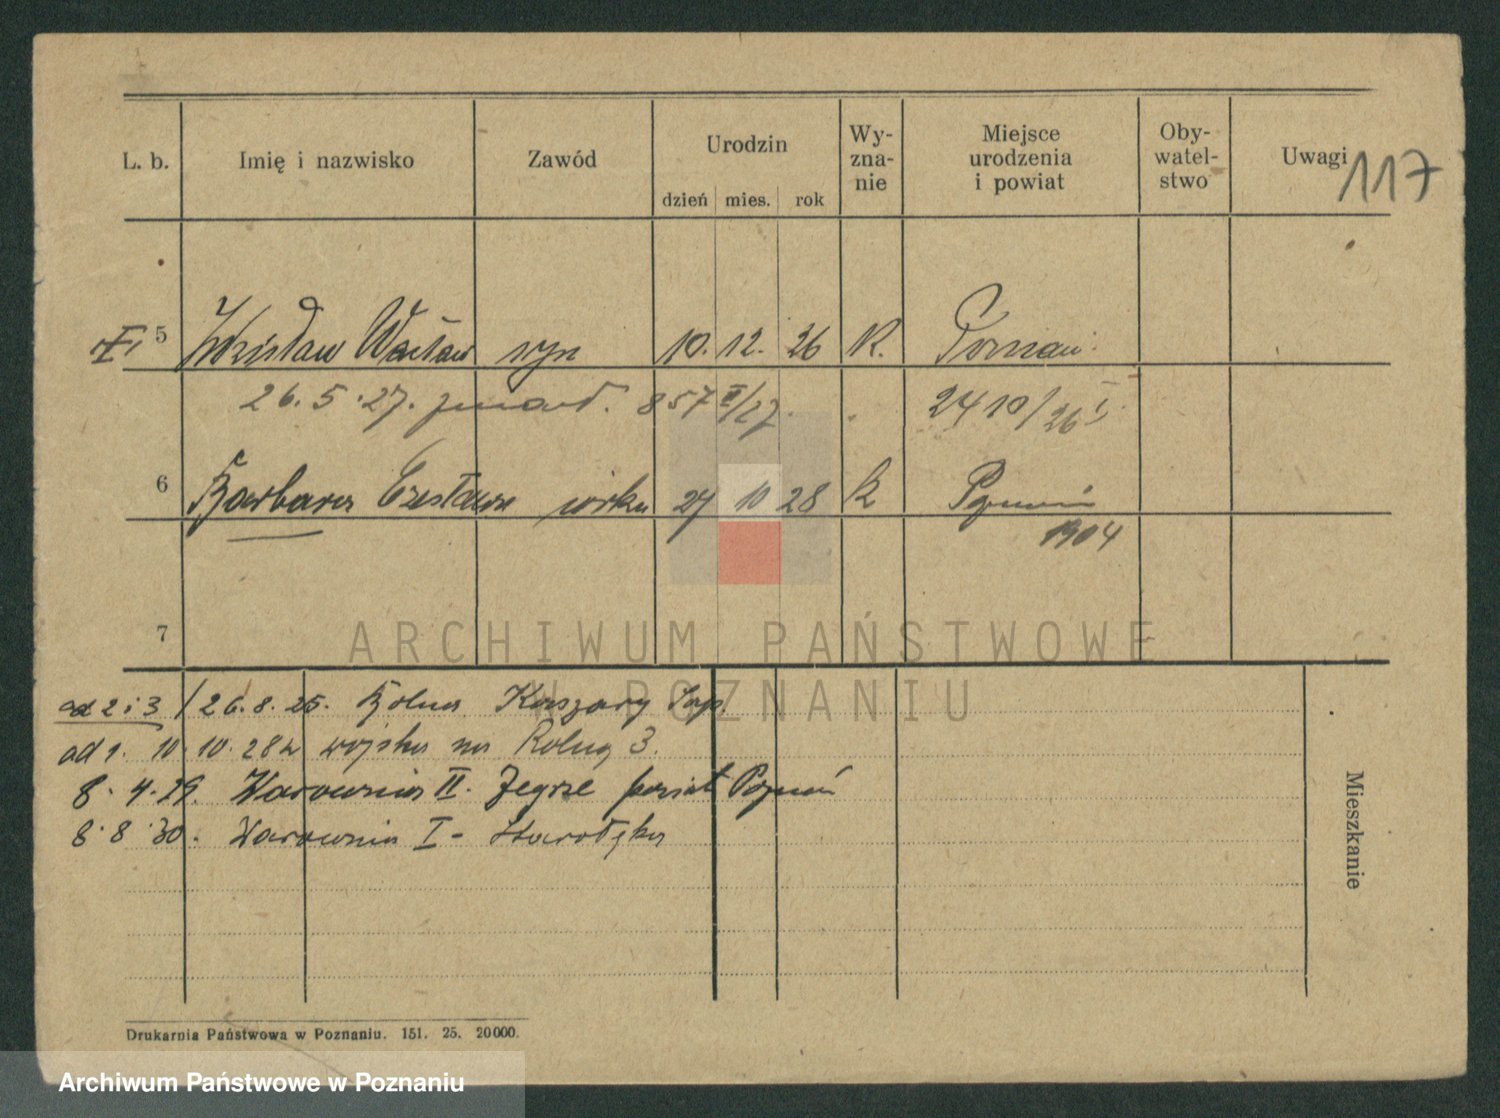 117
L. b. Imię i nazwisko Zawód Urodzin dzień mies. rok Wy-zna-nie Miejsce urodzenia i powiat Oby-watel-stwo Uwagi
5 Zdzisław Wacław syn 10. 12. 26 K. Poznań
26. 5. 27. zmarł. 857 II/27. 2410/26 I
6 Barbara Czesława córka 27 10 28 k Poznań
1904
7
ARCHIWUM PAŃSTWOWE
W POZNANIU
ad 2 i 3 / 26. 8. 25. Bolna Koszary Sap.
ad 1. 10. 10. 28 z wojska na Rolną 3.
8. 4. 29. Warownia II. Zegrze powiat Poznań
8. 8. 30. Warownia I - Starołęka
Mieszkanie
Drukarnia Państwowa w Poznaniu. 151. 25. 20000.
Archiwum Państwowe w Poznaniu